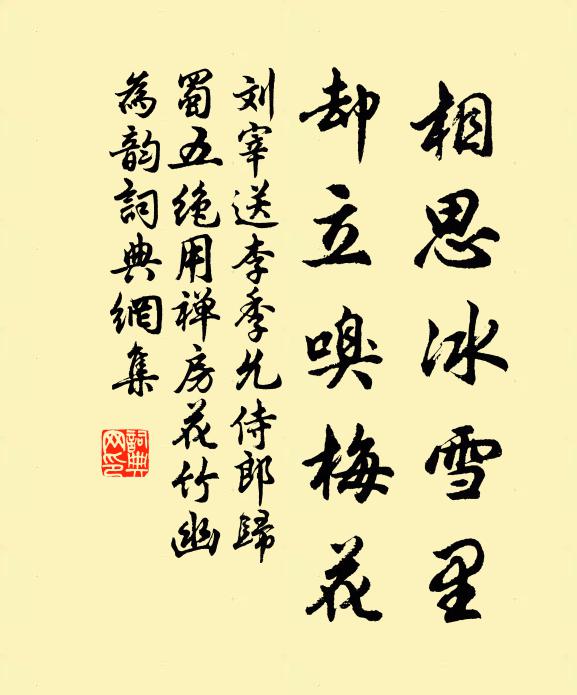 相思冰雪里
却立嗅梅花
刘宰送李季允侍郎歸
蜀五绝用禅房花竹幽
為韵詞典網集
詞典网印